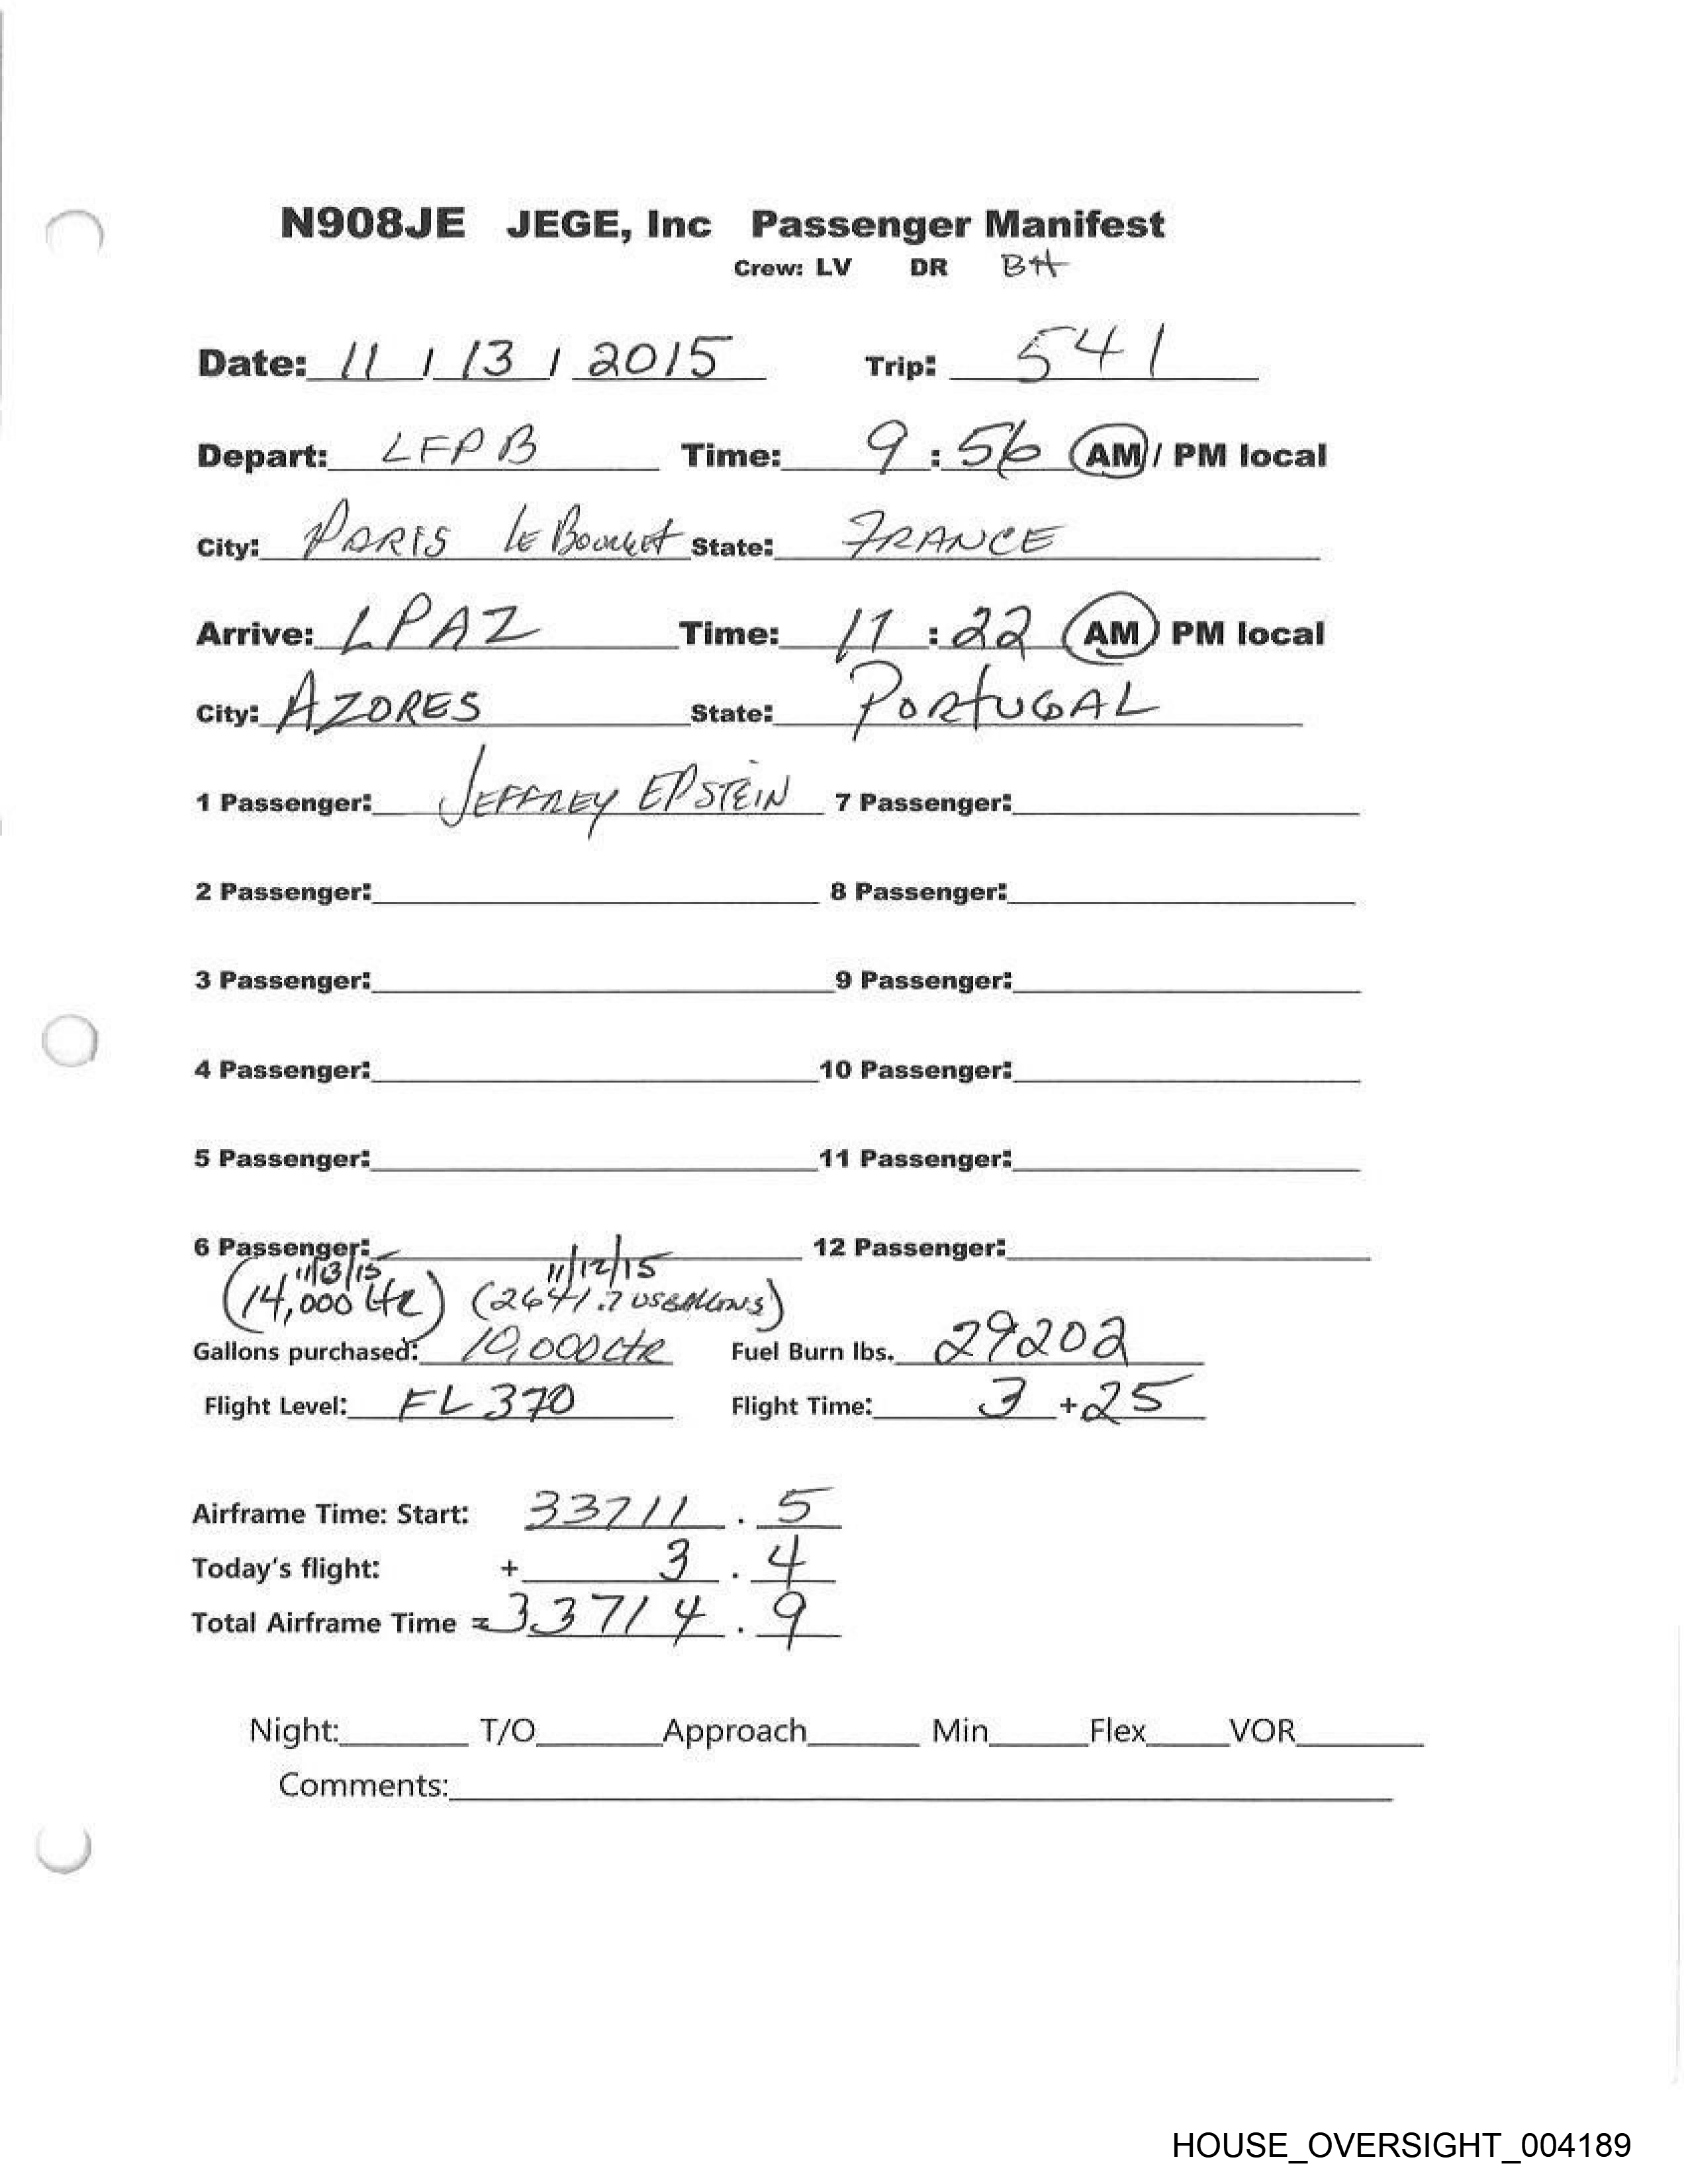 N908JE JEGE, Inc Passenger Manifest
Crew: LV DR BH
Date: 11 / 13 / 2015 Trip: 541
Depart: LFPB Time: 9 : 56 AM / PM local
City: PARIS Le Bourget State: FRANCE
Arrive: LPAZ Time: 11 : 22 AM PM local
City: AZORES State: PORTUGAL
1 Passenger: JEFFREY EPSTEIN 7 Passenger:
2 Passenger: 8 Passenger:
3 Passenger: 9 Passenger:
4 Passenger: 10 Passenger:
5 Passenger: 11 Passenger:
6 Passenger: 12 Passenger:
11/13/15 11/12/15
(14,000 Ltr) (2641.7 US GAllons)
Gallons purchased: 10,000 LtR Fuel Burn lbs. 29202
Flight Level: FL 370 Flight Time: 3 +25
Airframe Time: Start: 33711 . 5
Today's flight: + 3 . 4
Total Airframe Time = 33714 . 9
Night: T/O Approach Min Flex VOR
Comments:
HOUSE_OVERSIGHT_004189